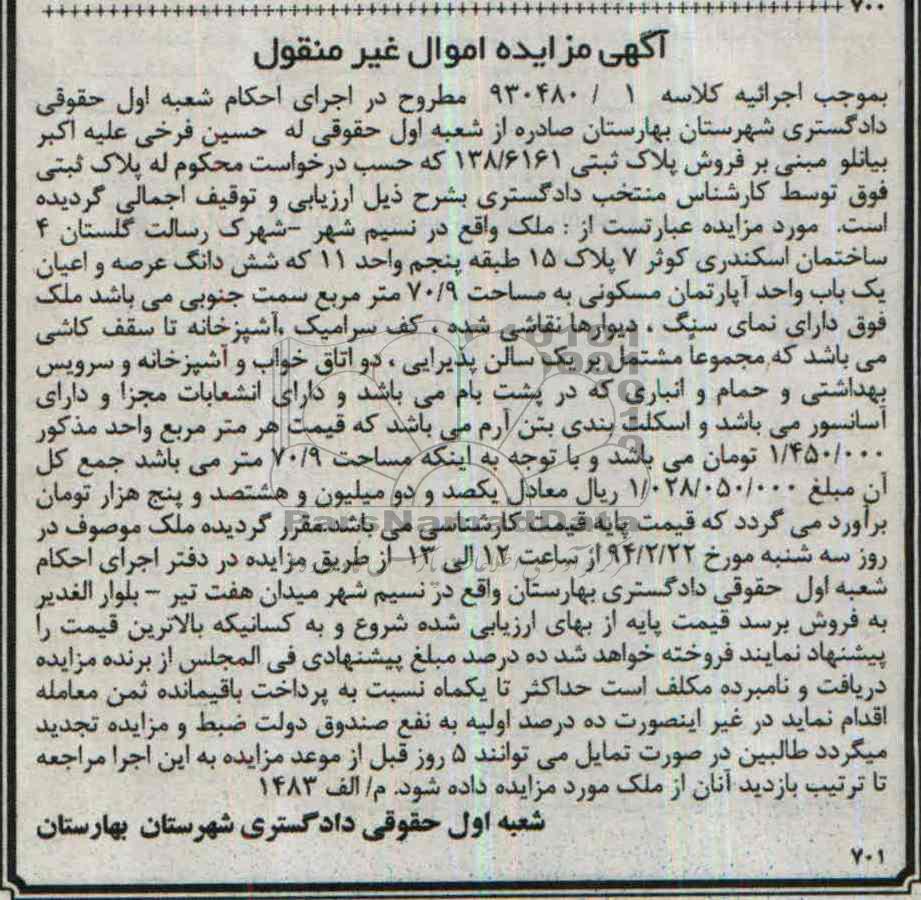 ۷۰۰
آگهی مزایده اموال غیر منقول
بموجب اجرائیه کلاسه ۱ / ۹۳۰۴۸۰ مطروح در اجرای احکام شعبه اول حقوقی
دادگستری شهرستان بهارستان صادره از شعبه اول حقوقی له حسین فرخی علیه اکبر
بیانلو مبنی بر فروش پلاک ثبتی ۱۳۸/۶۱۶۱ که حسب درخواست محکوم له پلاک ثبتی
فوق توسط کارشناس منتخب دادگستری بشرح ذیل ارزیابی و توقیف اجمالی گردیده
است. مورد مزایده عبارتست از : ملک واقع در نسیم شهر -شهرک رسالت گلستان ۴
ساختمان اسکندری کوثر ۷ پلاک ۱۵ طبقه پنجم واحد ۱۱ که شش دانگ عرصه و اعیان
یک باب واحد آپارتمان مسکونی به مساحت ۷۰/۹ متر مربع سمت جنوبی می باشد ملک
فوق دارای نمای سنگ ، دیوارها نقاشی شده ، کف سرامیک ،آشپزخانه تا سقف کاشی
می باشد که مجموعاً مشتمل بر یک سالن پذیرایی ، دو اتاق خواب و آشپزخانه و سرویس
بهداشتی و حمام و انباری که در پشت بام می باشد و دارای انشعابات مجزا و دارای
آسانسور می باشد و اسکلت بندی بتن آرم می باشد که قیمت هر متر مربع واحد مذکور
۱/۴۵۰/۰۰۰ تومان می باشد و با توجه به اینکه مساحت ۷۰/۹ متر می باشد جمع کل
آن مبلغ ۱/۰۲۸/۰۵۰/۰۰۰ ریال معادل یکصد و دو میلیون و هشتصد و پنج هزار تومان
برآورد می گردد که قیمت پایه قیمت کارشناسی می باشد مقرر گردیده ملک موصوف در
روز سه شنبه مورخ ۹۴/۲/۲۲ از ساعت ۱۲ الی ۱۳ از طریق مزایده در دفتر اجرای احکام
شعبه اول حقوقی دادگستری بهارستان واقع در نسیم شهر میدان هفت تیر - بلوار الغدیر
به فروش برسد قیمت پایه از بهای ارزیابی شده شروع و به کسانیکه بالاترین قیمت را
پیشنهاد نمایند فروخته خواهد شد ده درصد مبلغ پیشنهادی فی المجلس از برنده مزایده
دریافت و نامبرده مکلف است حداکثر تا یکماه نسبت به پرداخت باقیمانده ثمن معامله
اقدام نماید در غیر اینصورت ده درصد اولیه به نفع صندوق دولت ضبط و مزایده تجدید
میگردد طالبین در صورت تمایل می توانند ۵ روز قبل از موعد مزایده به این اجرا مراجعه
تا ترتیب بازدید آنان از ملک مورد مزایده داده شود. م/ الف ۱۴۸۳
شعبه اول حقوقی دادگستری شهرستان بهارستان
۷۰۱
ParsNamadData